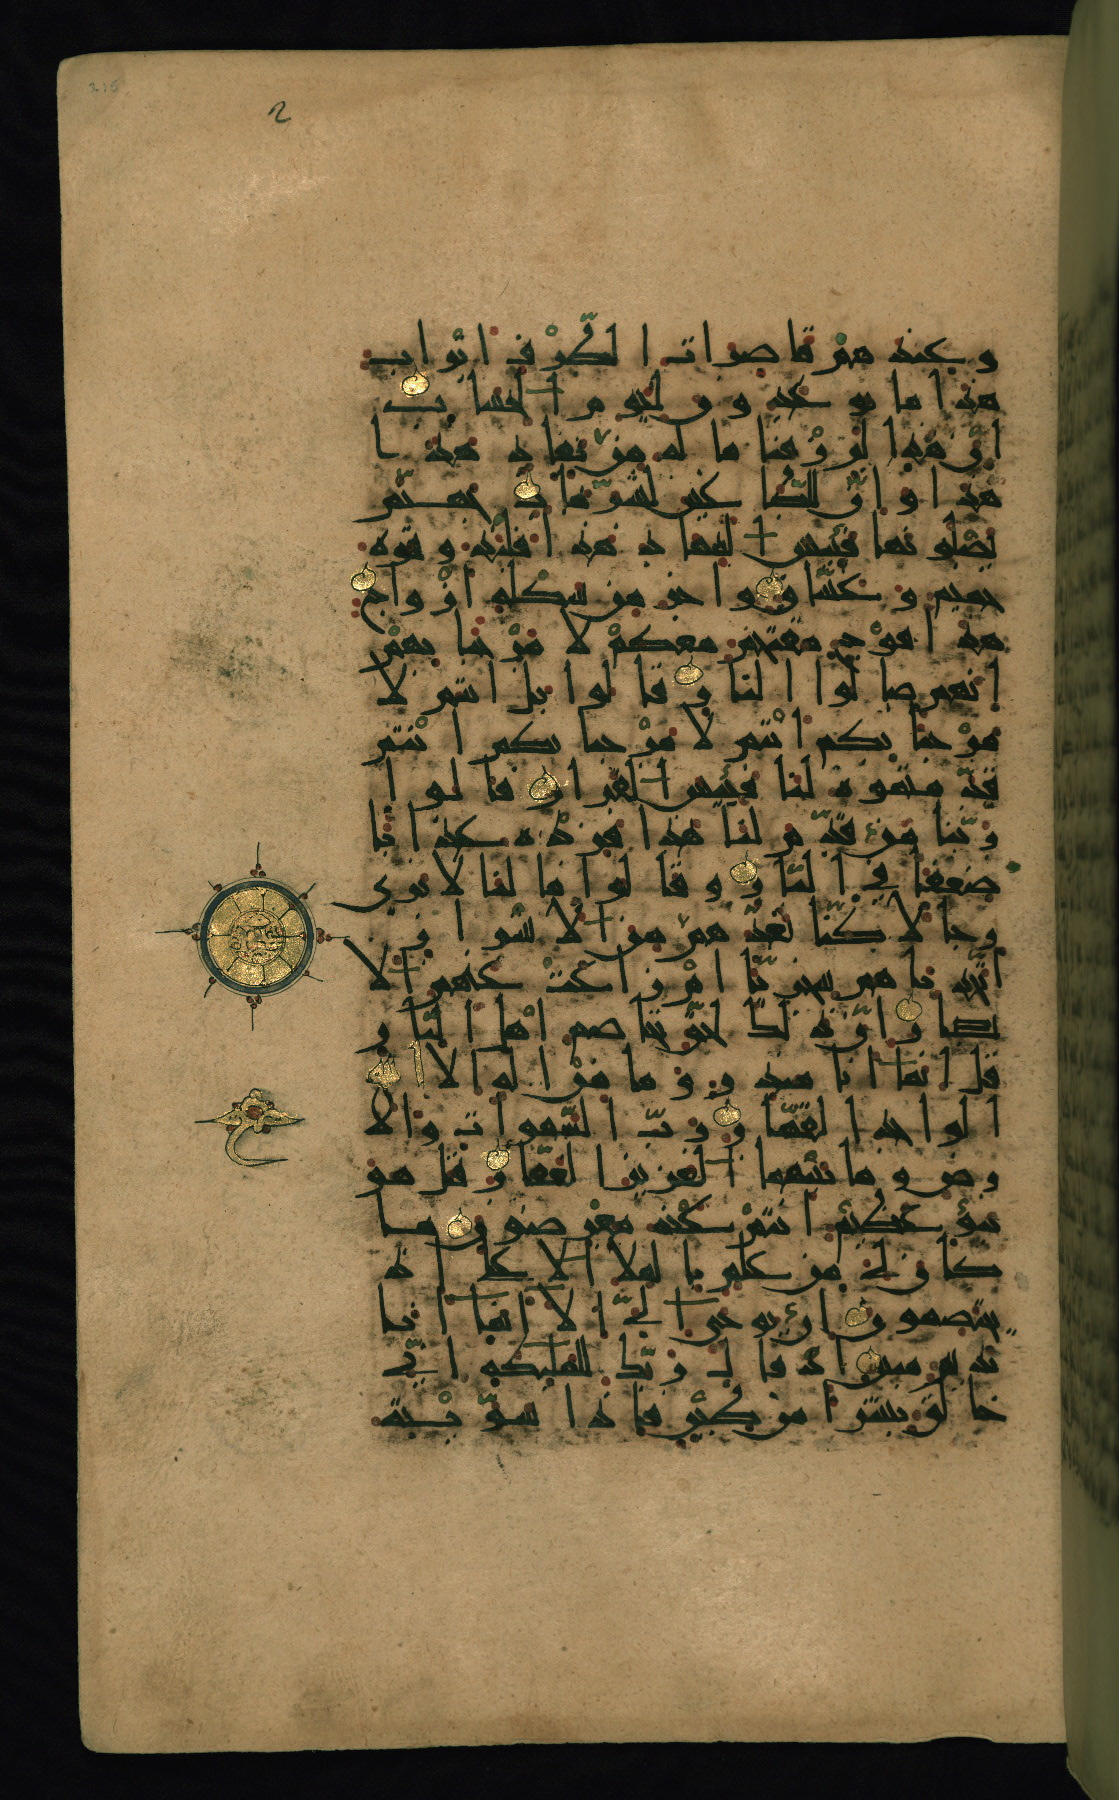 215
2
وعندهم قاصرات الطرف اتراب
هذا ما توعدون ليوم الحساب
ان هذا لرزقنا ما له من نفاد هذا
هذا وان للطاغين لشر ماب جهنم
يصلونها فبئس المهاد هذا فليذوقوه
حميم وغساق واخر من شكله ازواج
هذا فوج مقتحم معكم لا مرحبا بهم
انهم صالوا النار قالوا بل انتم لا
مرحبا بكم انتم لا مرحبا بكم انتم
قدمتموه لنا فبئس القرار قالوا
ربنا من قدم لنا هذا فزده عذابا
ضعفا في النار وقالوا ما لنا لا نرى
رجالا كنا نعدهم من الاشرار
اتخذناهم سخريا ام زاغت عنهم الا
بصار ان ذلك لحق تخاصم اهل النار
قل انما انا منذر وما من اله الا الله
الواحد القهار رب السموات والا
رض وما بينهما العزيز الغفار قل هو
نبؤ عظيم انتم عنه معرضون ما
كان لي من علم بالملا الاعلى اذ
يختصمون ان يوحى الي الا انما انا
نذير مبين اذ قال ربك للملئكة اني
خالق بشرا من طين فاذا سويته